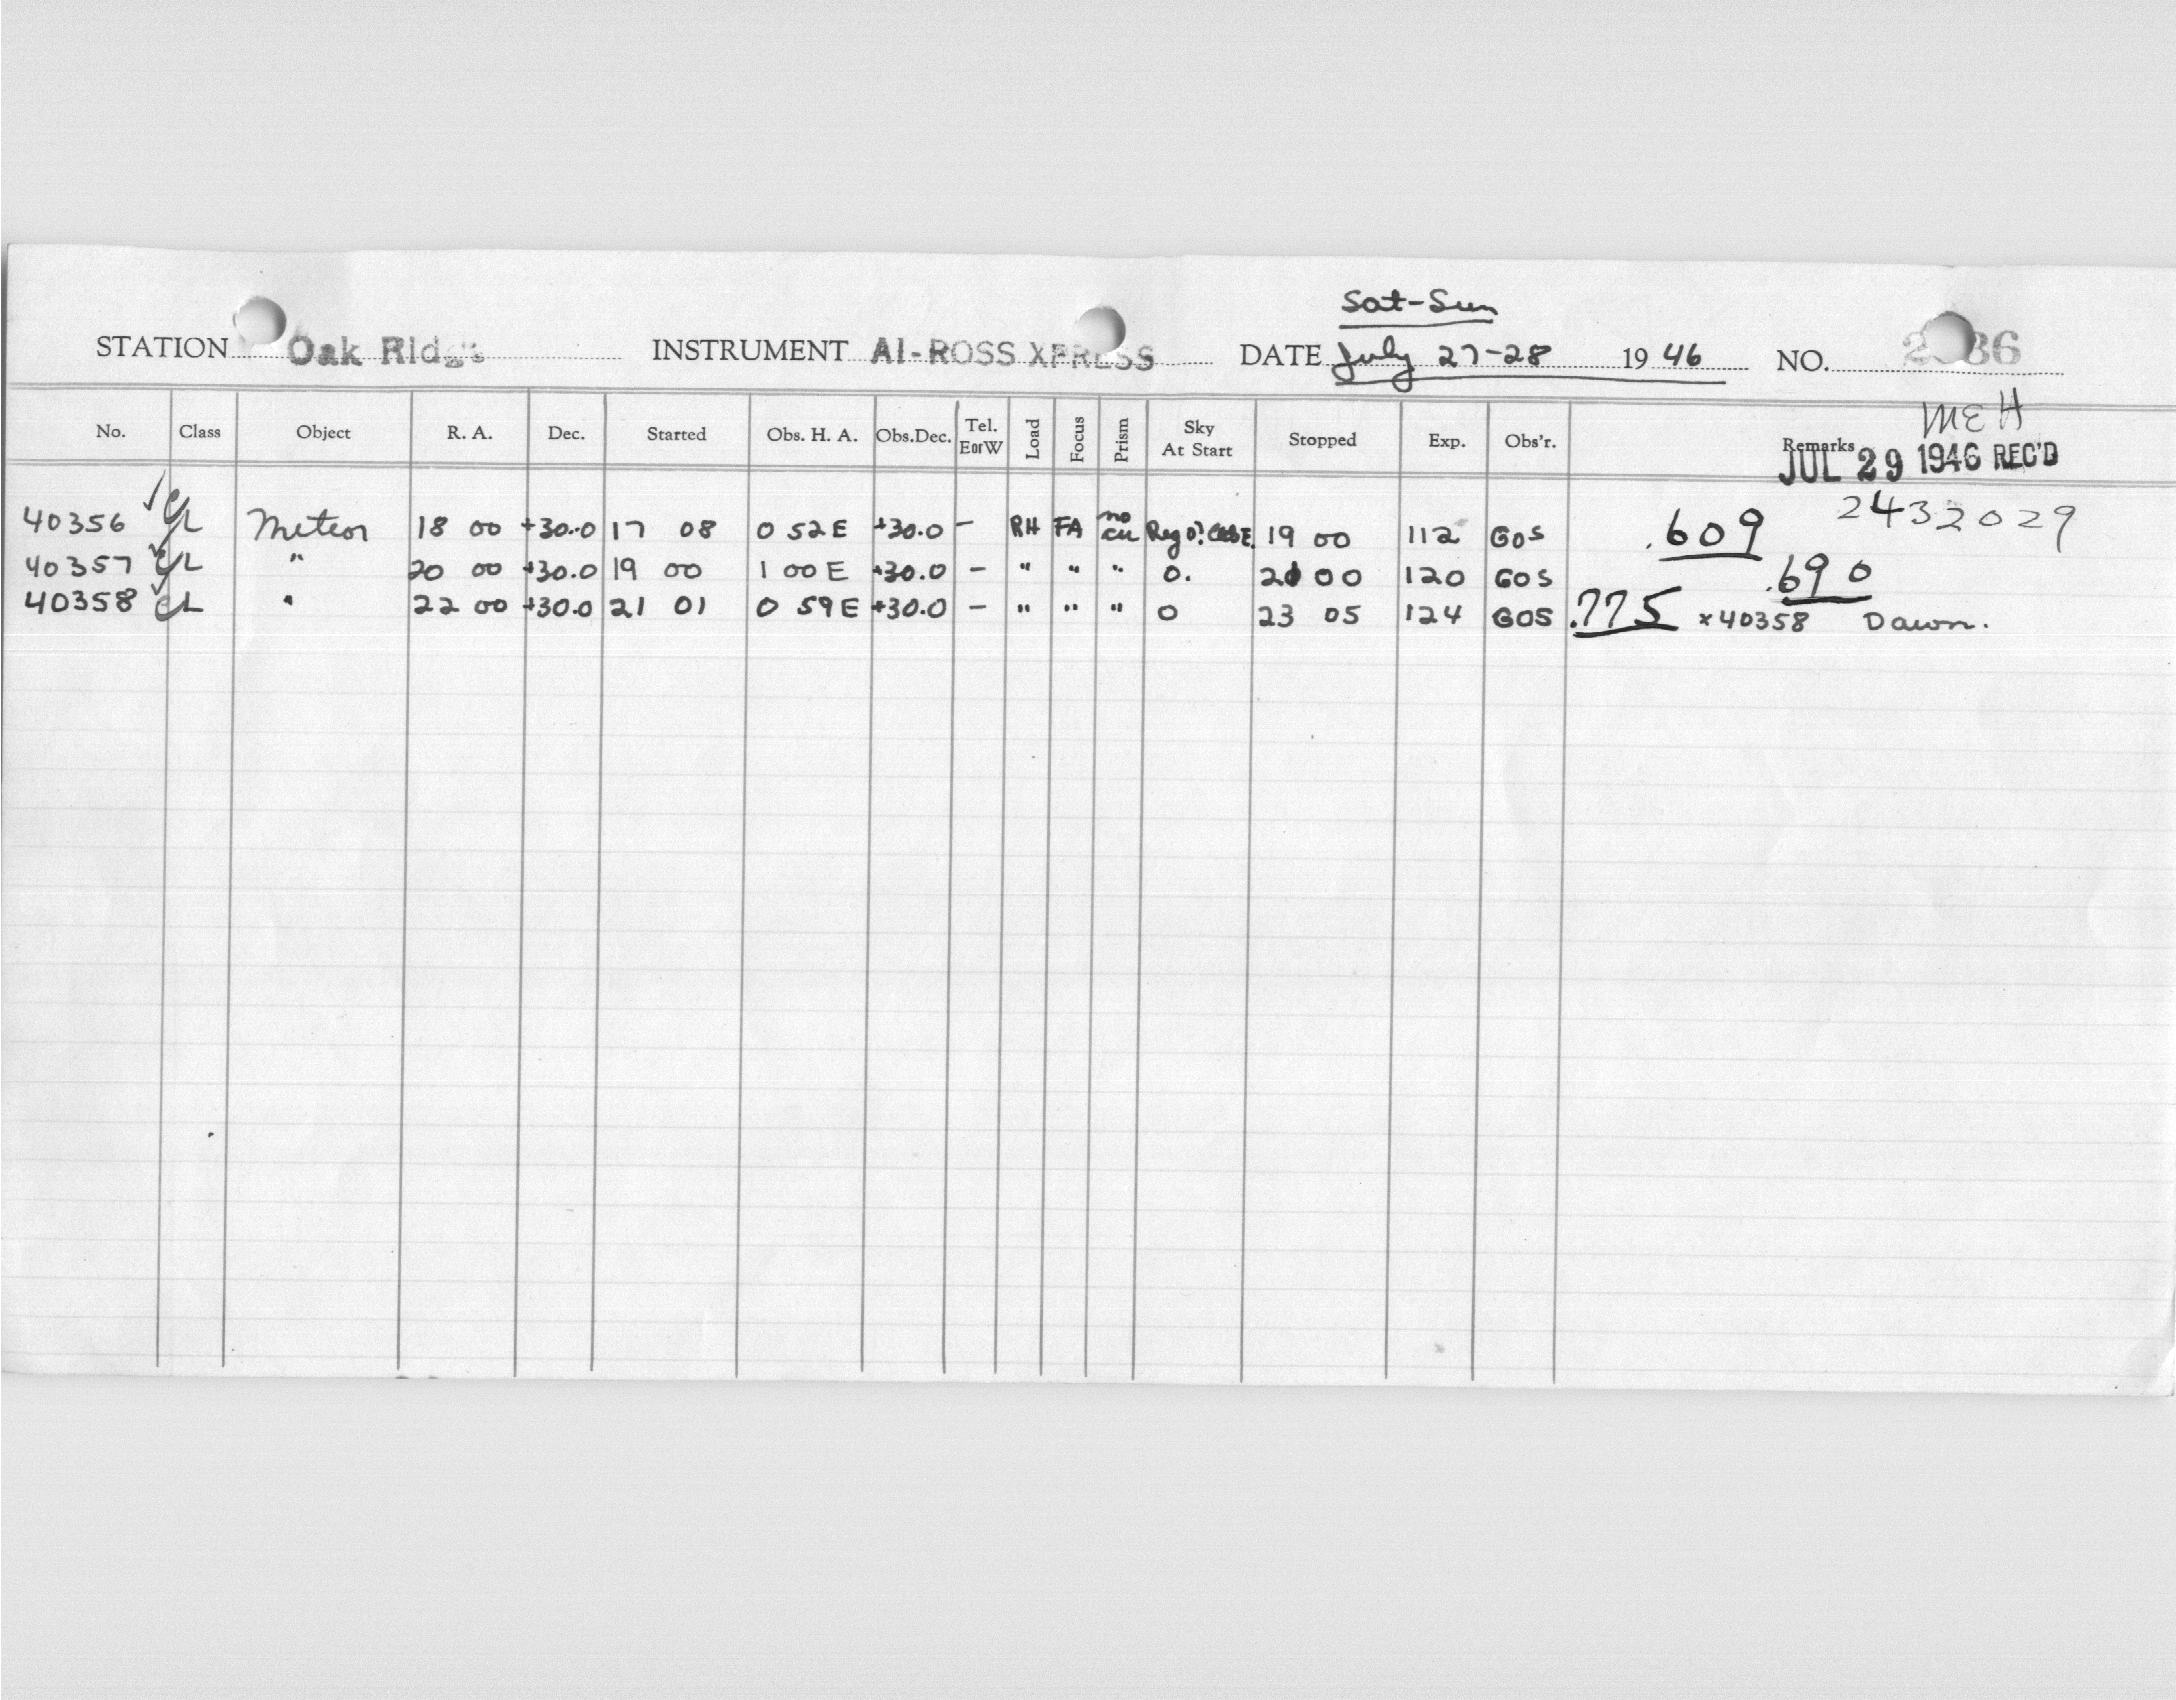 Sat-Sun
STATION Oak Ridge INSTRUMENT AI-ROSS XPRESS DATE July 27-28 1946 NO.
MEH
No. Class Object R. A. Dec. Started Obs. H. A. Obs.Dec. Tel. E or W Load Focus Prism Sky At Start Stopped Exp. Obs'r. Remarks
JUL 29 1946 REC'D
2432029
40356 CL Meteor 18 00 +30.0 17 08 0 52E +30.0 - RH FA no cu 19 00 112 GOS .609
40357 CL " 20 00 +30.0 19 00 1 00E +30.0 - " " " 0. 21 00 120 GOS .690
40358 CL " 22 00 +30.0 21 01 0 59E +30.0 - " " " 0 23 05 124 GOS .775 x40358 Dawn.